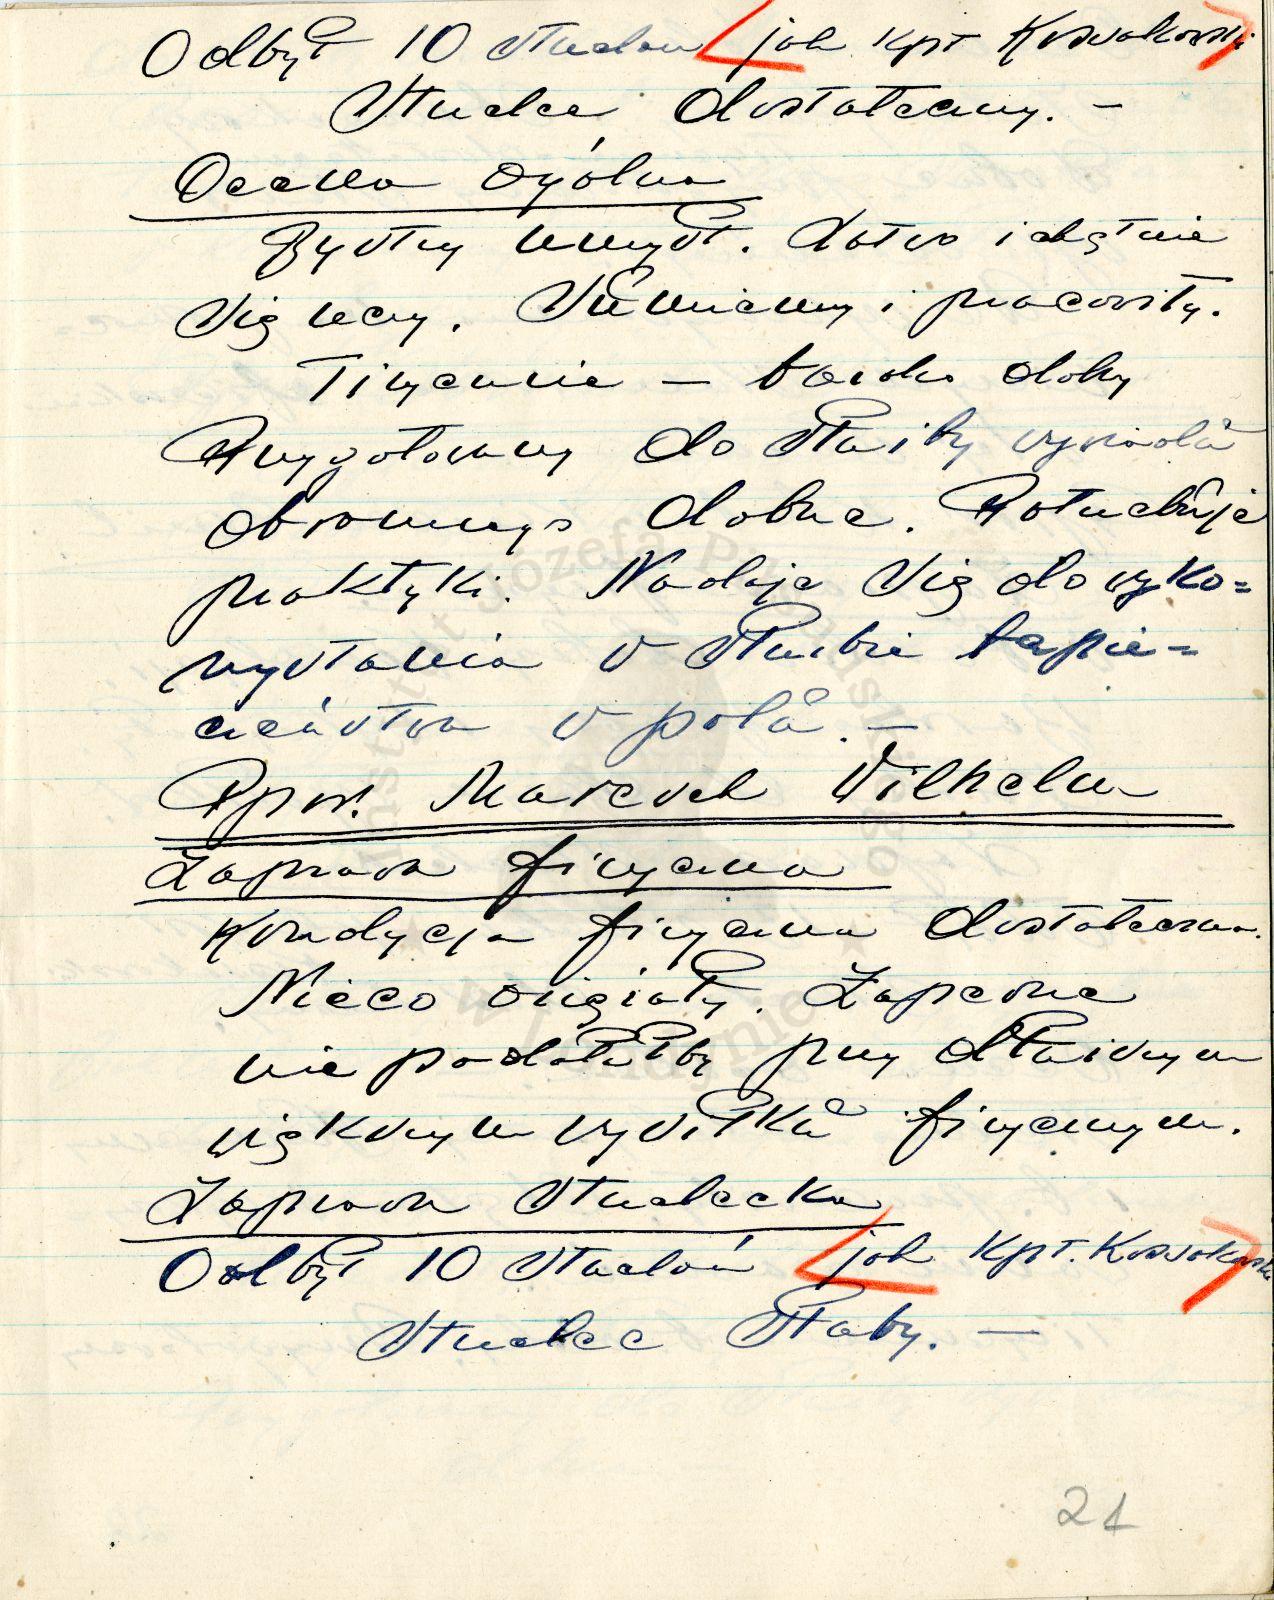 Odbył 10 strzelań < jak kpt Kossakowski >
Strzelec dostateczny. –
Ocena ogólna
Bystry umysł. Łatwo i chętnie
się uczy. Sumienny i pracowity.
Fizycznie – bardzo dobry
Przygotowany do służby wywiadu
obronnego dobrze. Potrzebuje
praktyki. Nadaje się do wyko=
rzystania w służbie bezpie=
czeństwa w polu. –
Ppor. Marcuch Wilhelm
Zaprawa fizyczna
Kondycja fizyczna dostateczna.
Nieco otyły. Zapewne
nie podołałby przy dłuższym
większym wysiłku fizycznym.
Zaprawa strzelecka
Odbył 10 strzelań < jak kpt. Kossakowski >
Strzelec słaby. –
21
Instytut Józefa Piłsudskiego
w Londynie